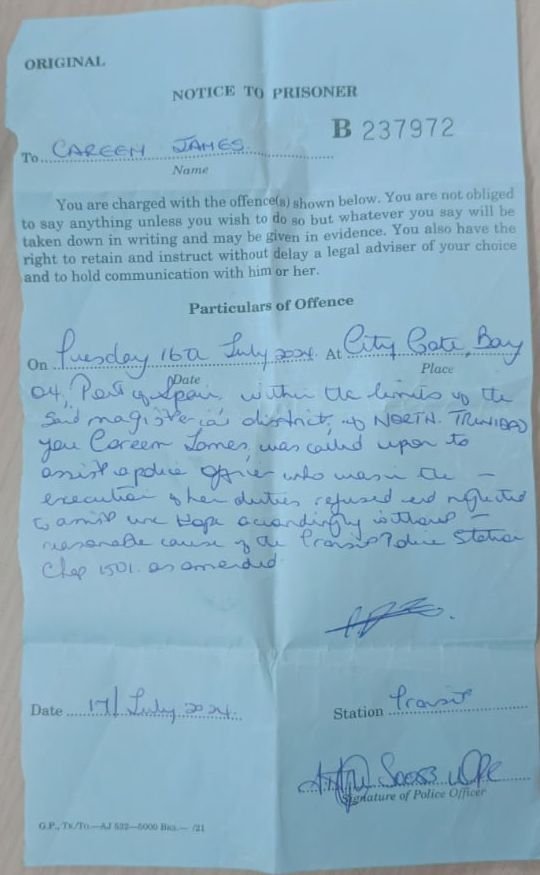 ORIGINAL
NOTICE TO PRISONER
B 237972
To CAREEM JAMES
Name
You are charged with the offence(s) shown below. You are not obliged
to say anything unless you wish to do so but whatever you say will be
taken down in writing and may be given in evidence. You also have the
right to retain and instruct without delay a legal adviser of your choice
and to hold communication with him or her.
Particulars of Offence
On Tuesday 16th July 2024 At City Gate, Bay
Date Place
04, Port of Spain, within the limits of the
said magisterial district, of NORTH. TRINIDAD
you Careem James, was called upon to
assist a police officer who was in the —
execution of her duties refused and neglected
to assist WPC Hope accordingly without —
reasonable cause of the Transit Police Station
Chap 1501. as amended.
Date 17/July 2024. Station Transit
WPC
Signature of Police Officer
G.P., TR/To.—AJ 532—5000 BKS.— /21